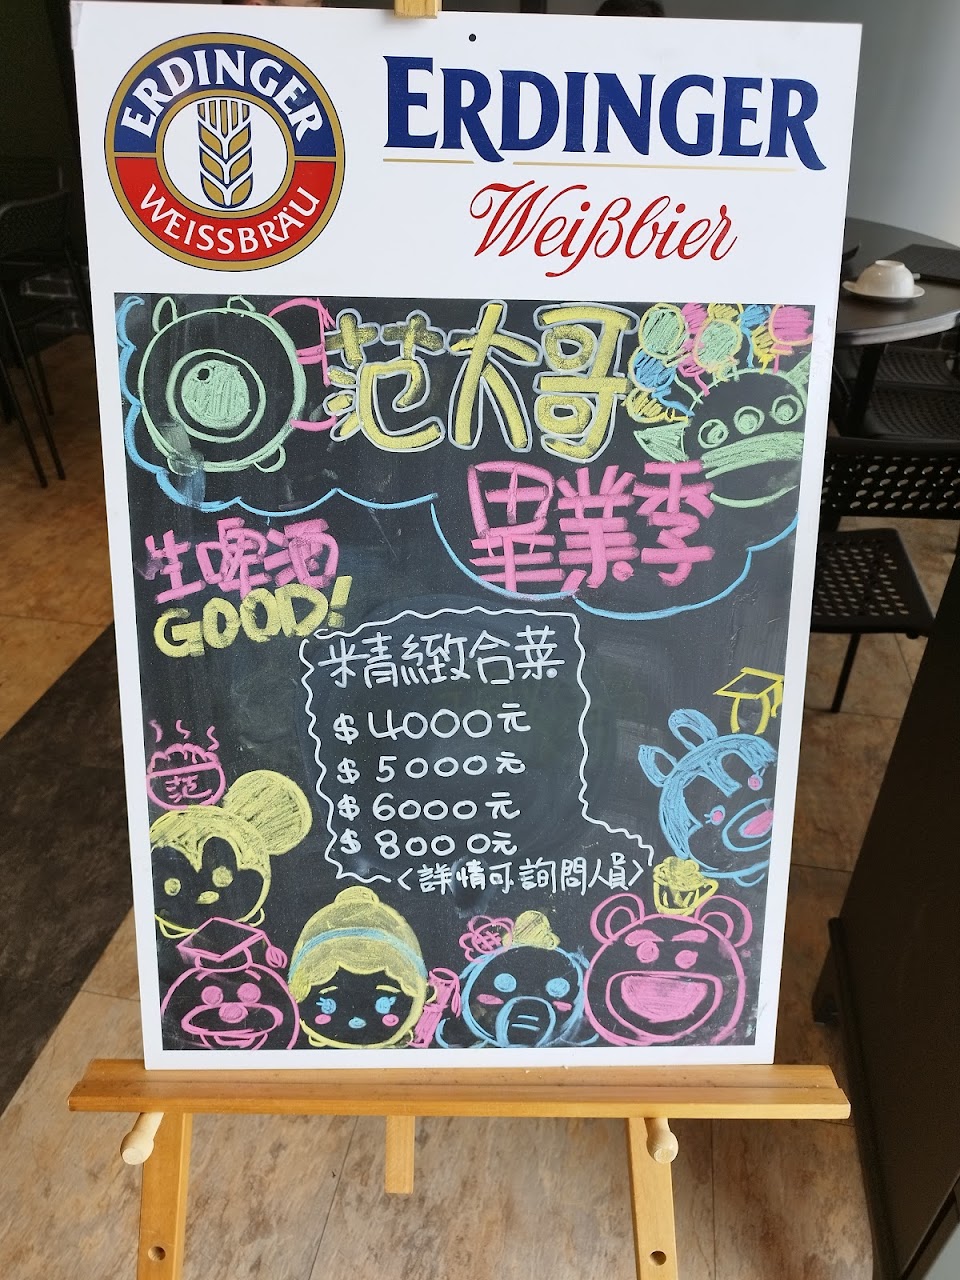 ERDINGER
WEISSBRÄU
ERDINGER
Weißbier
范大哥
畢業季
生啤酒
GOOD!
精緻合菜
$4000元
$5000元
$6000元
$8000元
<詳情可詢問人員>
范